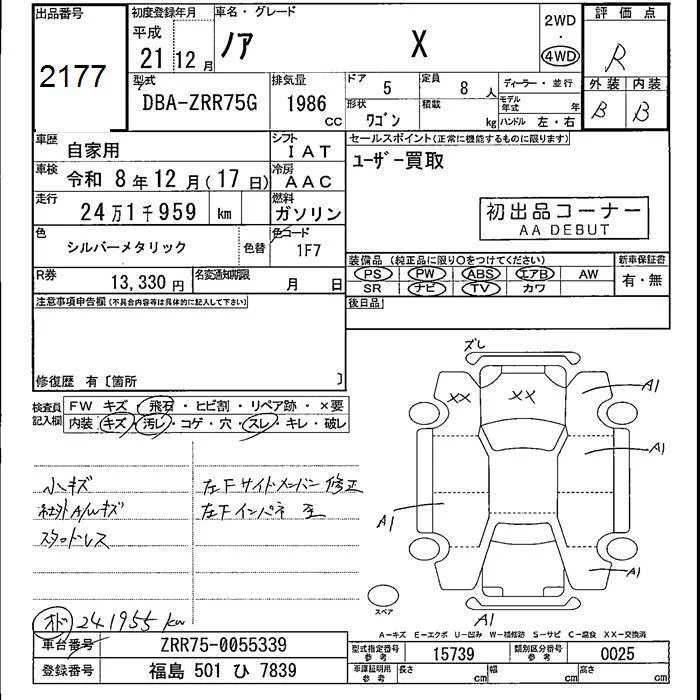 出品番号
2177
初度登録年月
平成
21 12 月
車名・グレード
ノア X
2WD
・
4WD
評価点
R
外装 内装
B B
型式
DBA-ZRR75G
排気量
1986 cc
ドア
5
定員
8 人
形状
ワゴン
積載
kg
ディーラー・並行
モデル年式 年
ハンドル 左・右
車歴
自家用
シフト
IAT
車検
令和 8年 12月(17日)
冷房
AAC
走行
24万1千959 km
燃料
ガソリン
色
シルバーメタリック
色替
色コード
1F7
R券
13,330 円
名変通知期限
月 日
セールスポイント(正常に機能するものに限ります)
ユーザー買取
初出品コーナー
AA DEBUT
装備品(純正品に限り○をつけてください)
PS PW ABS エアB AW
SR ナビ TV カワ
新車保証書
有・無
後日品
注意事項申告欄(不具合内容等は具体的に記入して下さい)
修復歴 有〔箇所 〕
検査員記入欄
FW キズ・飛石・ヒビ割・リペア跡・×要
内装 キズ・汚レ・コゲ・穴・スレ・キレ・破レ
小キズ
社外A/Wキズ
スタッドレス
左Fサイドメンバー修正
左Fインパネ 歪
オド 241955 km
ズレ
XX
XX
A1
A1
A1
A1
A1
スペア
A-キズ E-エクボ U-凹み W-補修跡 S-サビ C-腐食 XX-交換済
車台番号
ZRR75-0055339
登録番号
福島 501 ひ 7839
型式指定番号
参考
15739
類別区分番号
参考
0025
車庫証明用
参考
長さ cm
幅 cm
高さ cm